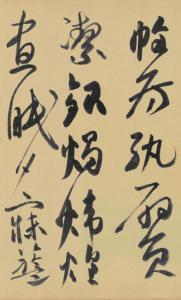 帷房紈扇員
潔銀燭煒煌
晝眠夕寐藍